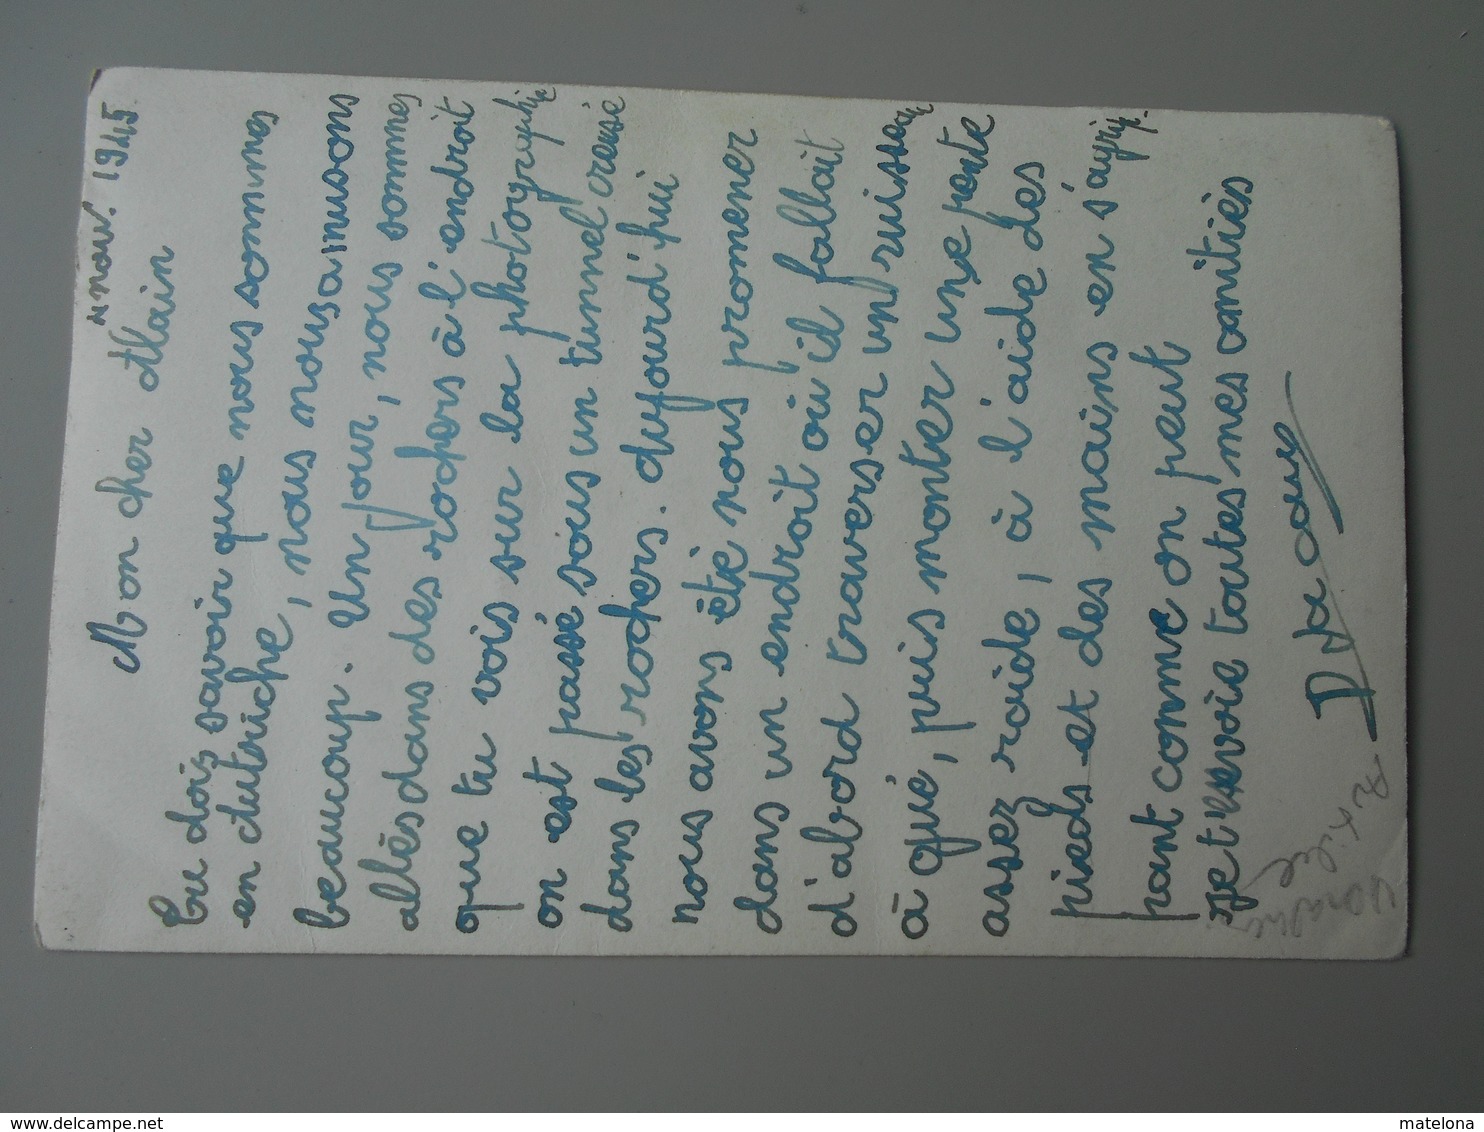 nov. 1945
Mon cher Alain
Tu dois savoir que nous sommes
en Autriche, nous nous amusons
beaucoup. Un jour, nous sommes
allès dans des rochers à l'endroit
que tu vois sur la photographie
on est passé sous un tunnel creusé
dans les rochers. Aujourd'hui
nous avons étè nous promener
dans un endroit où il fallait
d'abord traverser un ruisseau
à qué, puis monter une pente
assez raide, à l'aide des
pieds et des mains en s'agrip-
pant comme on peut
je t'envoie toutes mes amitiès
www.delcampe.net
matelona